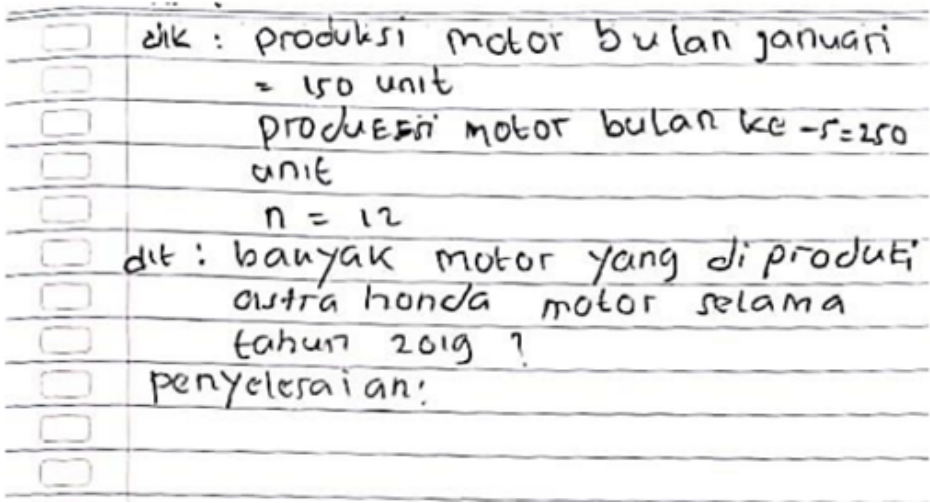 dik : produksi motor bulan januari
= 150 unit
produksi motor bulan ke -5=250
unit
n = 12
dit : banyak motor yang di produti
astra honda motor selama
tahun 2019 ?
penyelesaian: